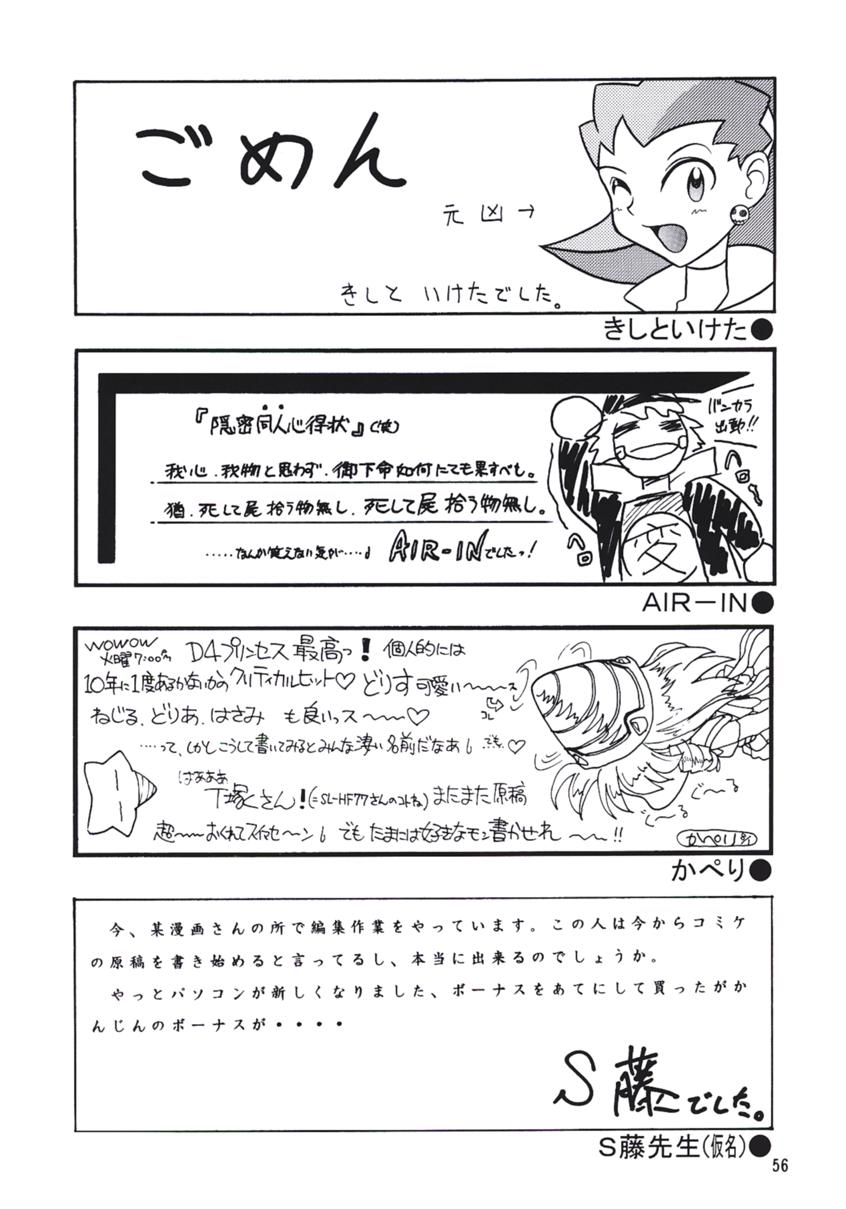 ごめん
元凶→
きしと いけたでした。
きしといけた●
『隠密同人心得状』(嘘)
バンカラ
出動!!
我心、我物と思わず、御下命如何にても果すべも。
猶、死して屍拾う物無し、死して屍拾う物無し。
ヘロ
ヘロ
変
.....なんか笑えない気が....♪ AIR-INでしたっ!
AIR-IN●
WOWOW
火曜7:00〜 D4プリンセス最高っ! 個人的には
10年に1度あるかないかのクリティカルヒット♡ どりす可愛い〜〜ス
コレ
ねじる、どりあ、はさみ も良いっス〜〜♡
....って、しかしこうして書いてみるとみんな凄い名前だなあ
はぁぁぁ
丁塚くさん!(=SL-HF77さんのコトね) またまた原稿
超〜〜おくれてスイマセ〜ン でも たまには好きなモン書かせれ〜〜!!
ぐ〜る
ぐ〜る
かぺり
かぺり●
今、某漫画さんの所で編集作業をやっています。この人は今からコミケ
の原稿を書き始めると言ってるし、本当に出来るのでしょうか。
やっとパソコンが新しくなりました、ボーナスをあてにして買ったがか
んじんのボーナスが・・・・
S藤でした。
S藤先生(仮名)●
56